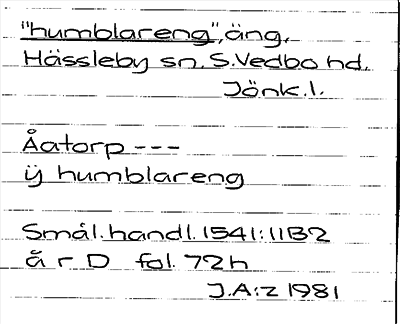 "humblareng", äng,
Hässleby sn, S. Vedbo hd,
Jönk. l.
Åatorp ---
ÿ humblareng
Smål. handl. 1541:11B2
å r D fol. 72h
J.A:z 1981